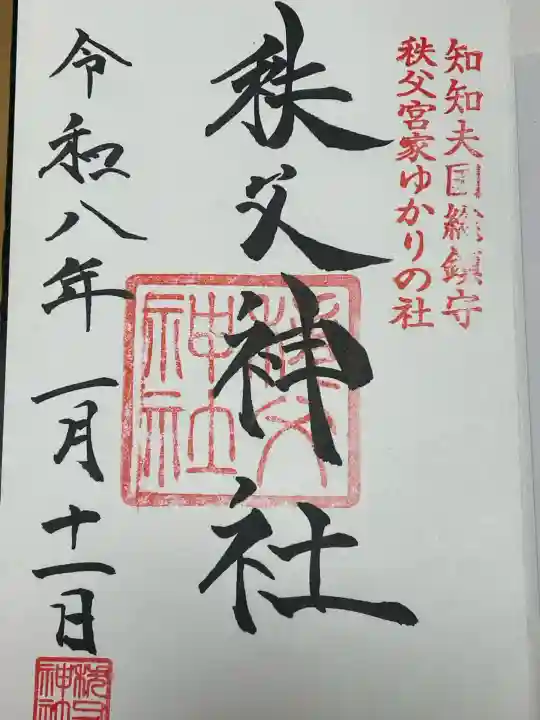 知知夫国総鎮守
秩父宮家ゆかりの社
秩父神社
秩父
神社
令和八年一月十一日
秩父
神社